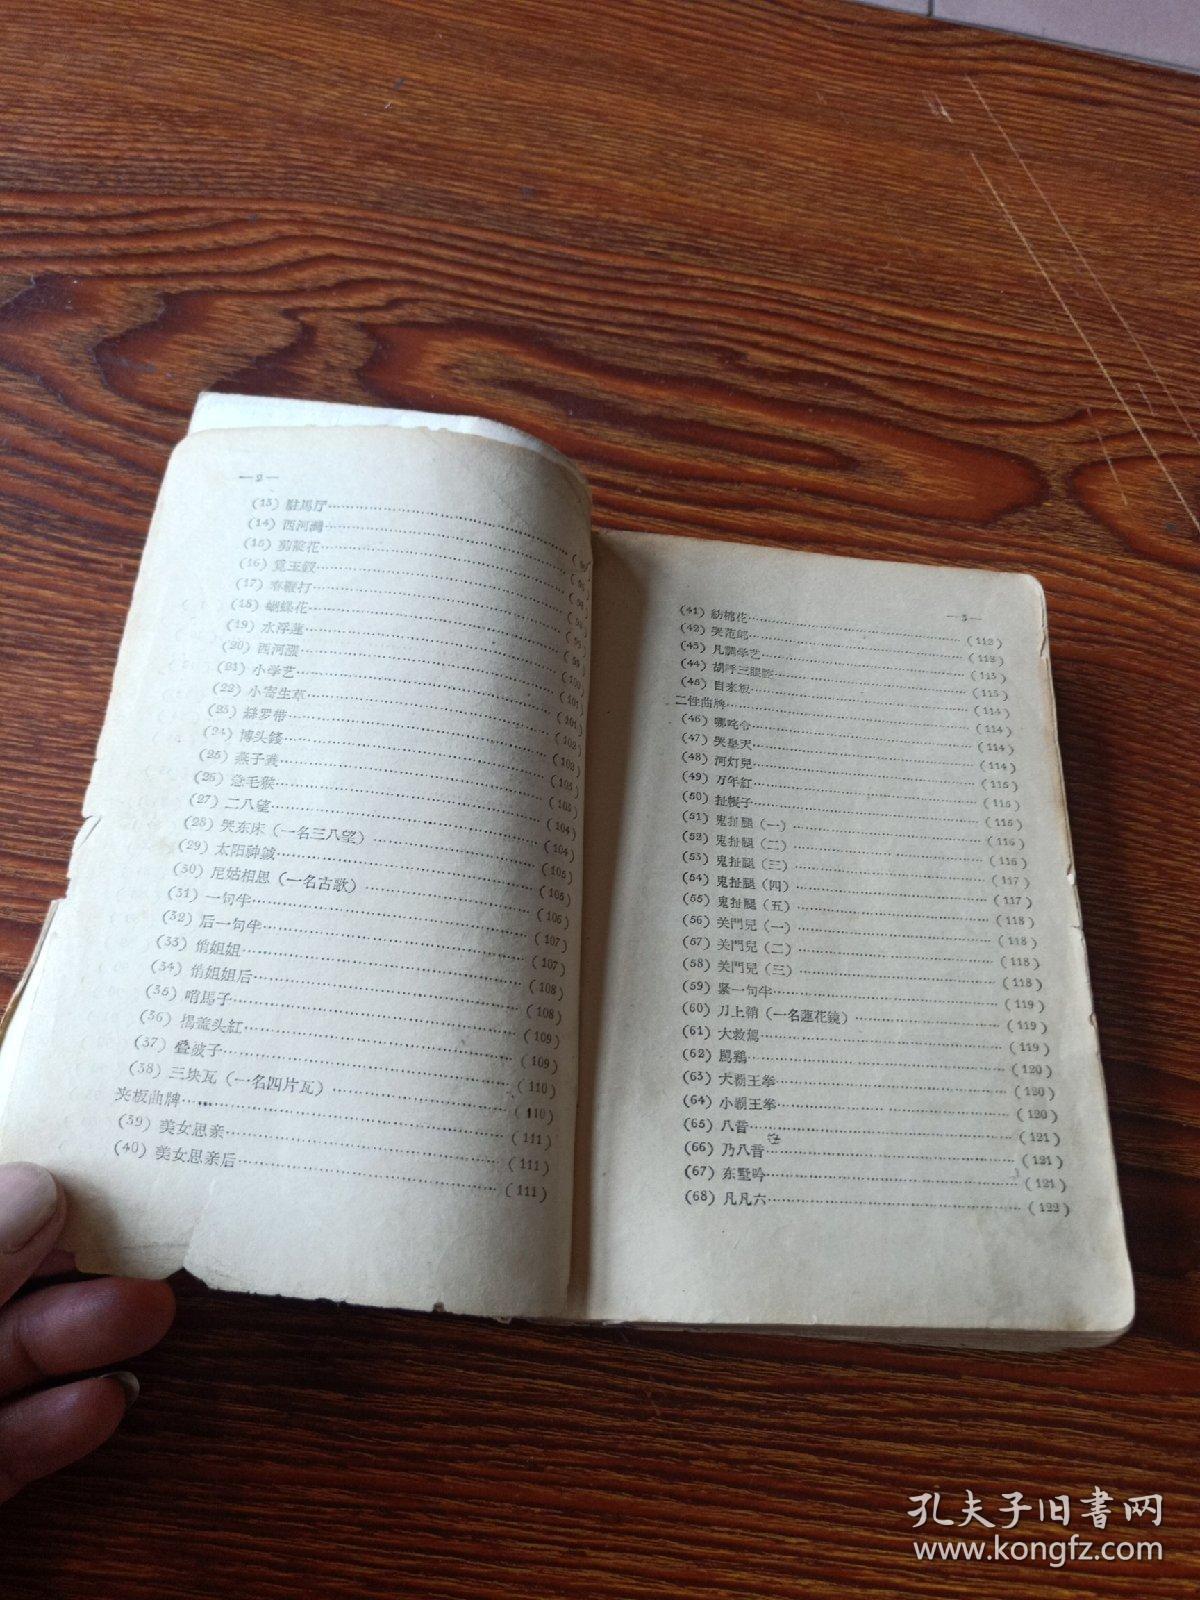 —2—
(13) 駐馬厅
(14) 西河灣
(15) 剪靛花
(16)
(17) 打
(18) 蝴蝶花
(19) 水浮蓮
(20) 西河
(21) 小学艺 (101)
(22) 小寄生草 (101)
(23) 絲罗带 (102)
(24) 博头錢 (102)
(25) 燕子 (103)
(26) 急毛猴 (103)
(27) 二八望 (104)
(28) 哭东床（一名三八望） (104)
(29) 太阳神 (105)
(30) 尼姑相思（一名古歌） (105)
(31) 一句半 (106)
(32) 后一句半 (107)
(33) 俏姐姐 (107)
(34) 俏姐姐后 (108)
(35) 馬子 (108)
(36) 揭盖头紅 (109)
(37) 叠 子 (109)
(38) 三块瓦（一名四片瓦） (110)
夹板曲牌 (110)
(39) 美女思亲 (111)
(40) 美女思亲后 (111)
(111)
—3—
(41) 紡棉花 (112)
(42) 哭范郎 (112)
(43) 凡調学艺 (113)
(44) 胡呼三 (113)
(45) 自来 (114)
二性曲牌 (114)
(46) 哪咤令 (114)
(47) 哭皇天 (114)
(48) 河灯兒 (115)
(49) 万年紅 (115)
(50) 扯幔子 (115)
(51) 鬼扯腿（一） (116)
(52) 鬼扯腿（二） (116)
(53) 鬼扯腿（三） (117)
(54) 鬼扯腿（四） (117)
(55) 鬼扯腿（五） (118)
(56) 关門兒（一） (118)
(57) 关門兒（二） (118)
(58) 关門兒（三） (118)
(59) 緊一句半 (119)
(60) 刀上鞘（一名蓮花鏡） (119)
(61) 大救駕 (119)
(62) 鬪鷄 (120)
(63) 大霸王拳 (120)
(64) 小霸王拳 (120)
(65) 八音 (121)
(66) 乃八音 (121)
(67) 东墅吟 (121)
(68) 凡凡六 (122)
孔夫子旧書网
www.kongfz.com